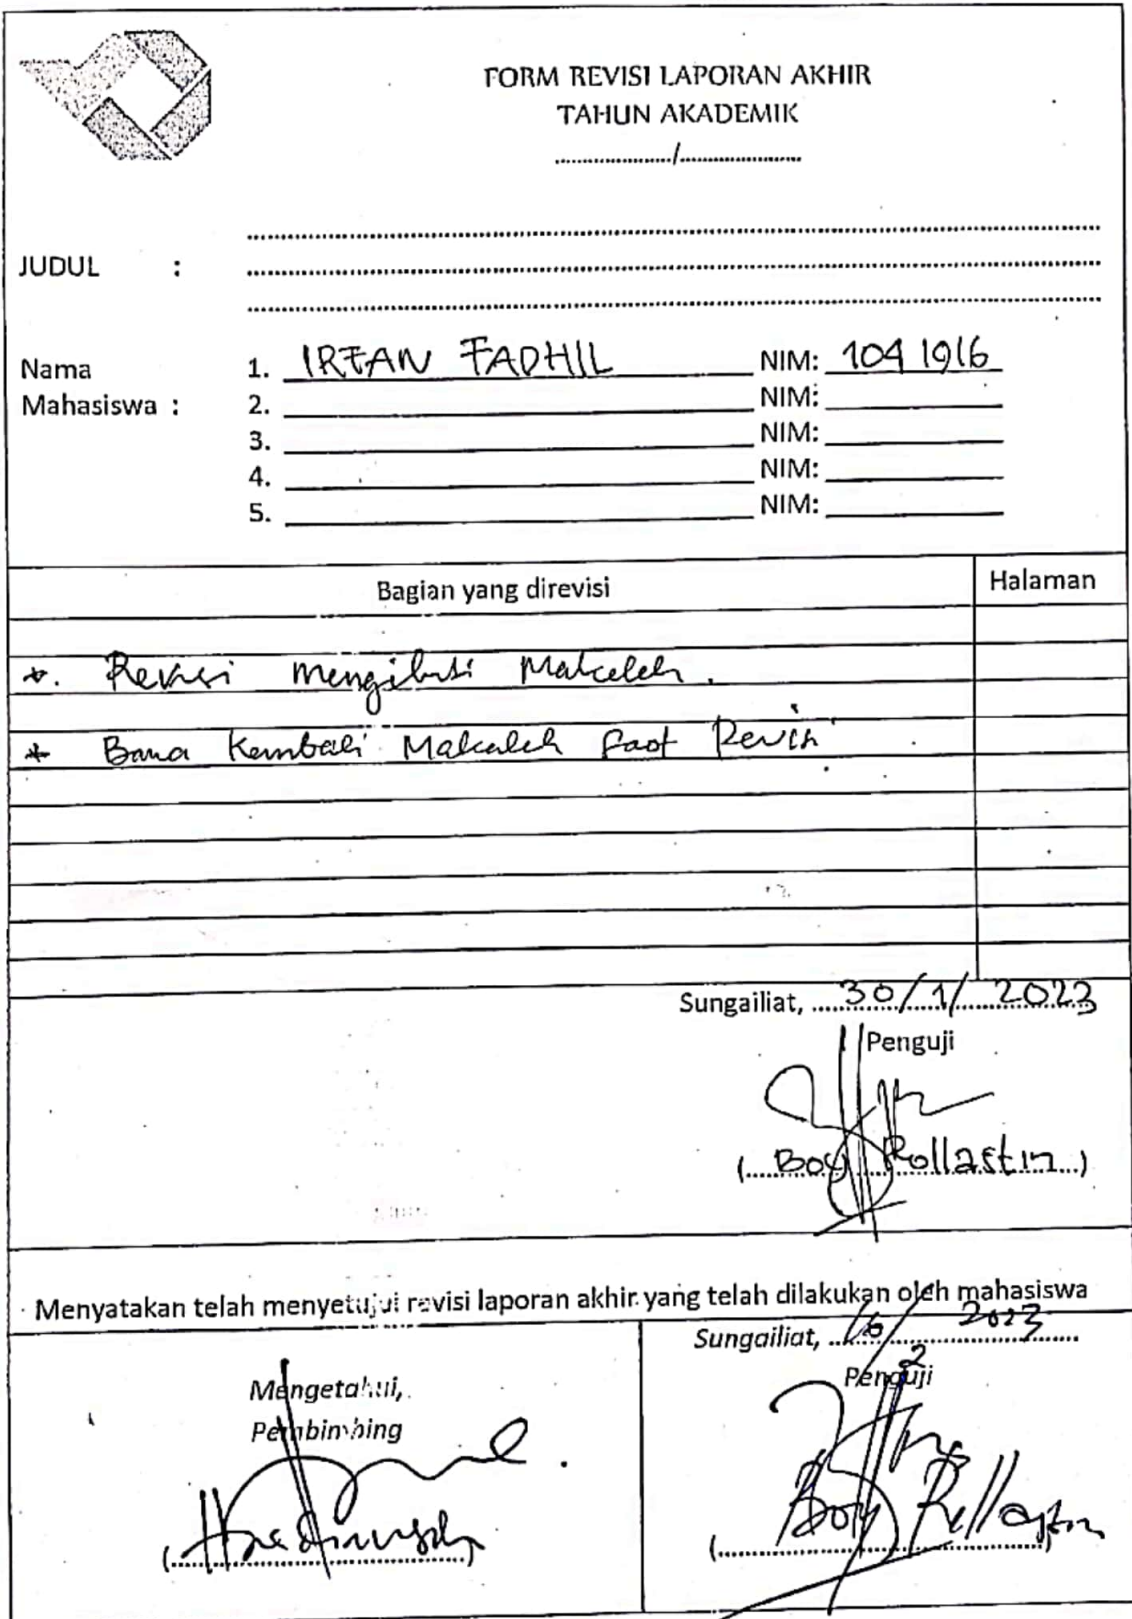 FORM REVISI LAPORAN AKHIR
TAHUN AKADEMIK
...................../......................
JUDUL :
Nama
Mahasiswa :
1. IRFAN FADHIL NIM: 1041916
2. NIM:
3. NIM:
4. NIM:
5. NIM:
Bagian yang direvisi Halaman
*. Revisi mengikuti Makalah.
* Bawa Kembali Makalah saat Revisi
Sungailiat, 30/1/2023
Penguji
(Boy Rollastin)
Menyatakan telah menyetujui revisi laporan akhir yang telah dilakukan oleh mahasiswa
Sungailiat, 16/2 2023
Mengetahui,
Pembimbing
Penguji
(Boy Rollastin)